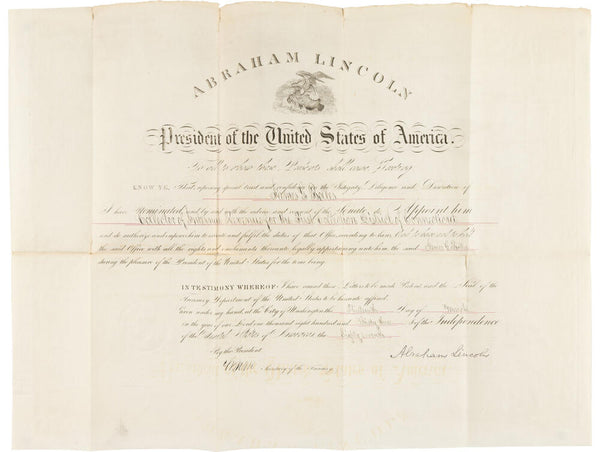 ABRAHAM LINCOLN
President of the United States of America.
To all to whom these Presents shall come, Greeting
KNOW YE, That reposing special trust and confidence in the Integrity, Diligence and Discretion of
I have Nominated, and by and with the advice and consent of the Senate, do Appoint him
Collector of Internal Revenue for the First Collection District of Connecticut
and do authorize and empower him to execute and fulfil the duties of that Office, according to law, And to have and to hold
the said Office with all the rights and emoluments thereunto legally appertaining unto him the said
during the pleasure of the President of the United States for the time being.
IN TESTIMONY WHEREOF, I have caused these Letters to be made Patent and the Seal of the
Treasury Department of the United States to be hereunto affixed.
Given under my hand, at the City of Washington the Day of March
in the year of our Lord one thousand eight hundred and of the Independence
of the United States of America the
By the President
Abraham Lincoln
Secretary of the Treasury